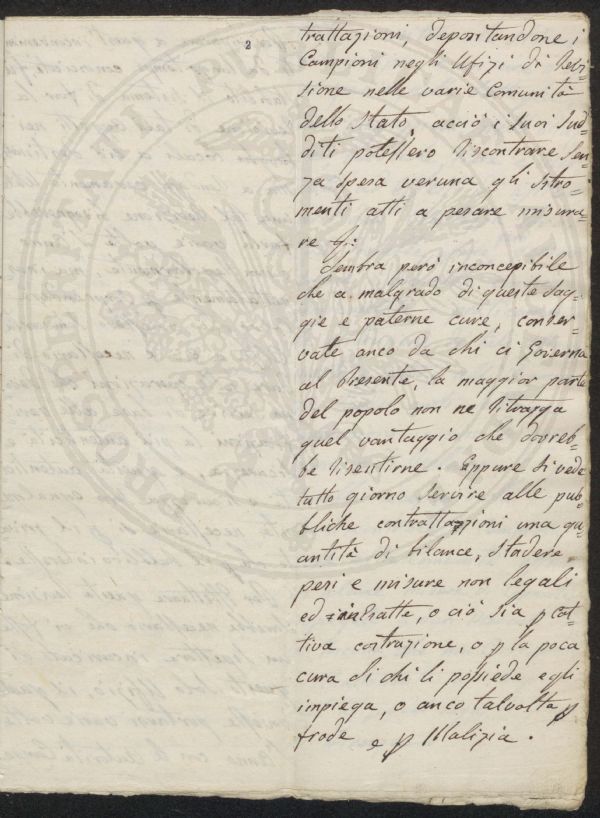 2
trattazioni, depositandone i
Campioni negli Ufizi di Revi=
sione nelle varie Comunità
dello Stato, acciò i suoi Sud=
diti potessero riscontrare sen=
za spesa veruna gli stro=
menti atti a pesare misura=
re &:
Sembra però inconcepibile
che a malgrado di queste sag=
gie e paterne cure, conser=
vate anco da chi ci Governa
al Presente, la maggior parte
del popolo non ne ritragga
quel vantaggio che dovreb=
be risentirne. Eppure si vede
tutto giorno servire alle pub=
bliche contrattazioni una qu=
antità di bilance, stadere
pesi e misure non legali
ed inesatte, o ciò sia p cat=
tiva costruzione, o p la poca
cura di chi li possiede e gli
impiega, o anco talvolta p
frode e p Malizia.